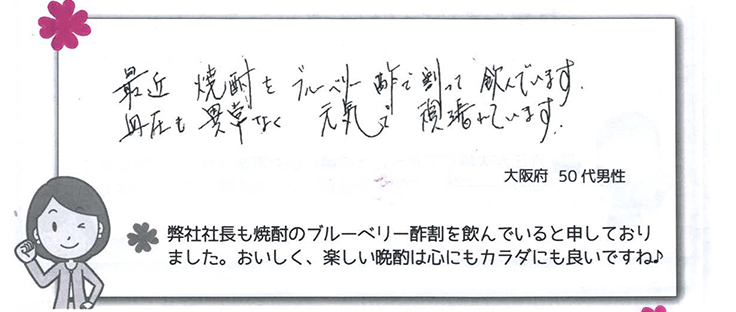 最近 焼酎を ブルーベリー酢で割って 飲んでいます.
血圧も 異常なく 元気で 頑張れています.
大阪府 50代男性
弊社社長も焼酎のブルーベリー酢割を飲んでいると申しており
ました。おいしく、楽しい晩酌は心にもカラダにも良いですね♪